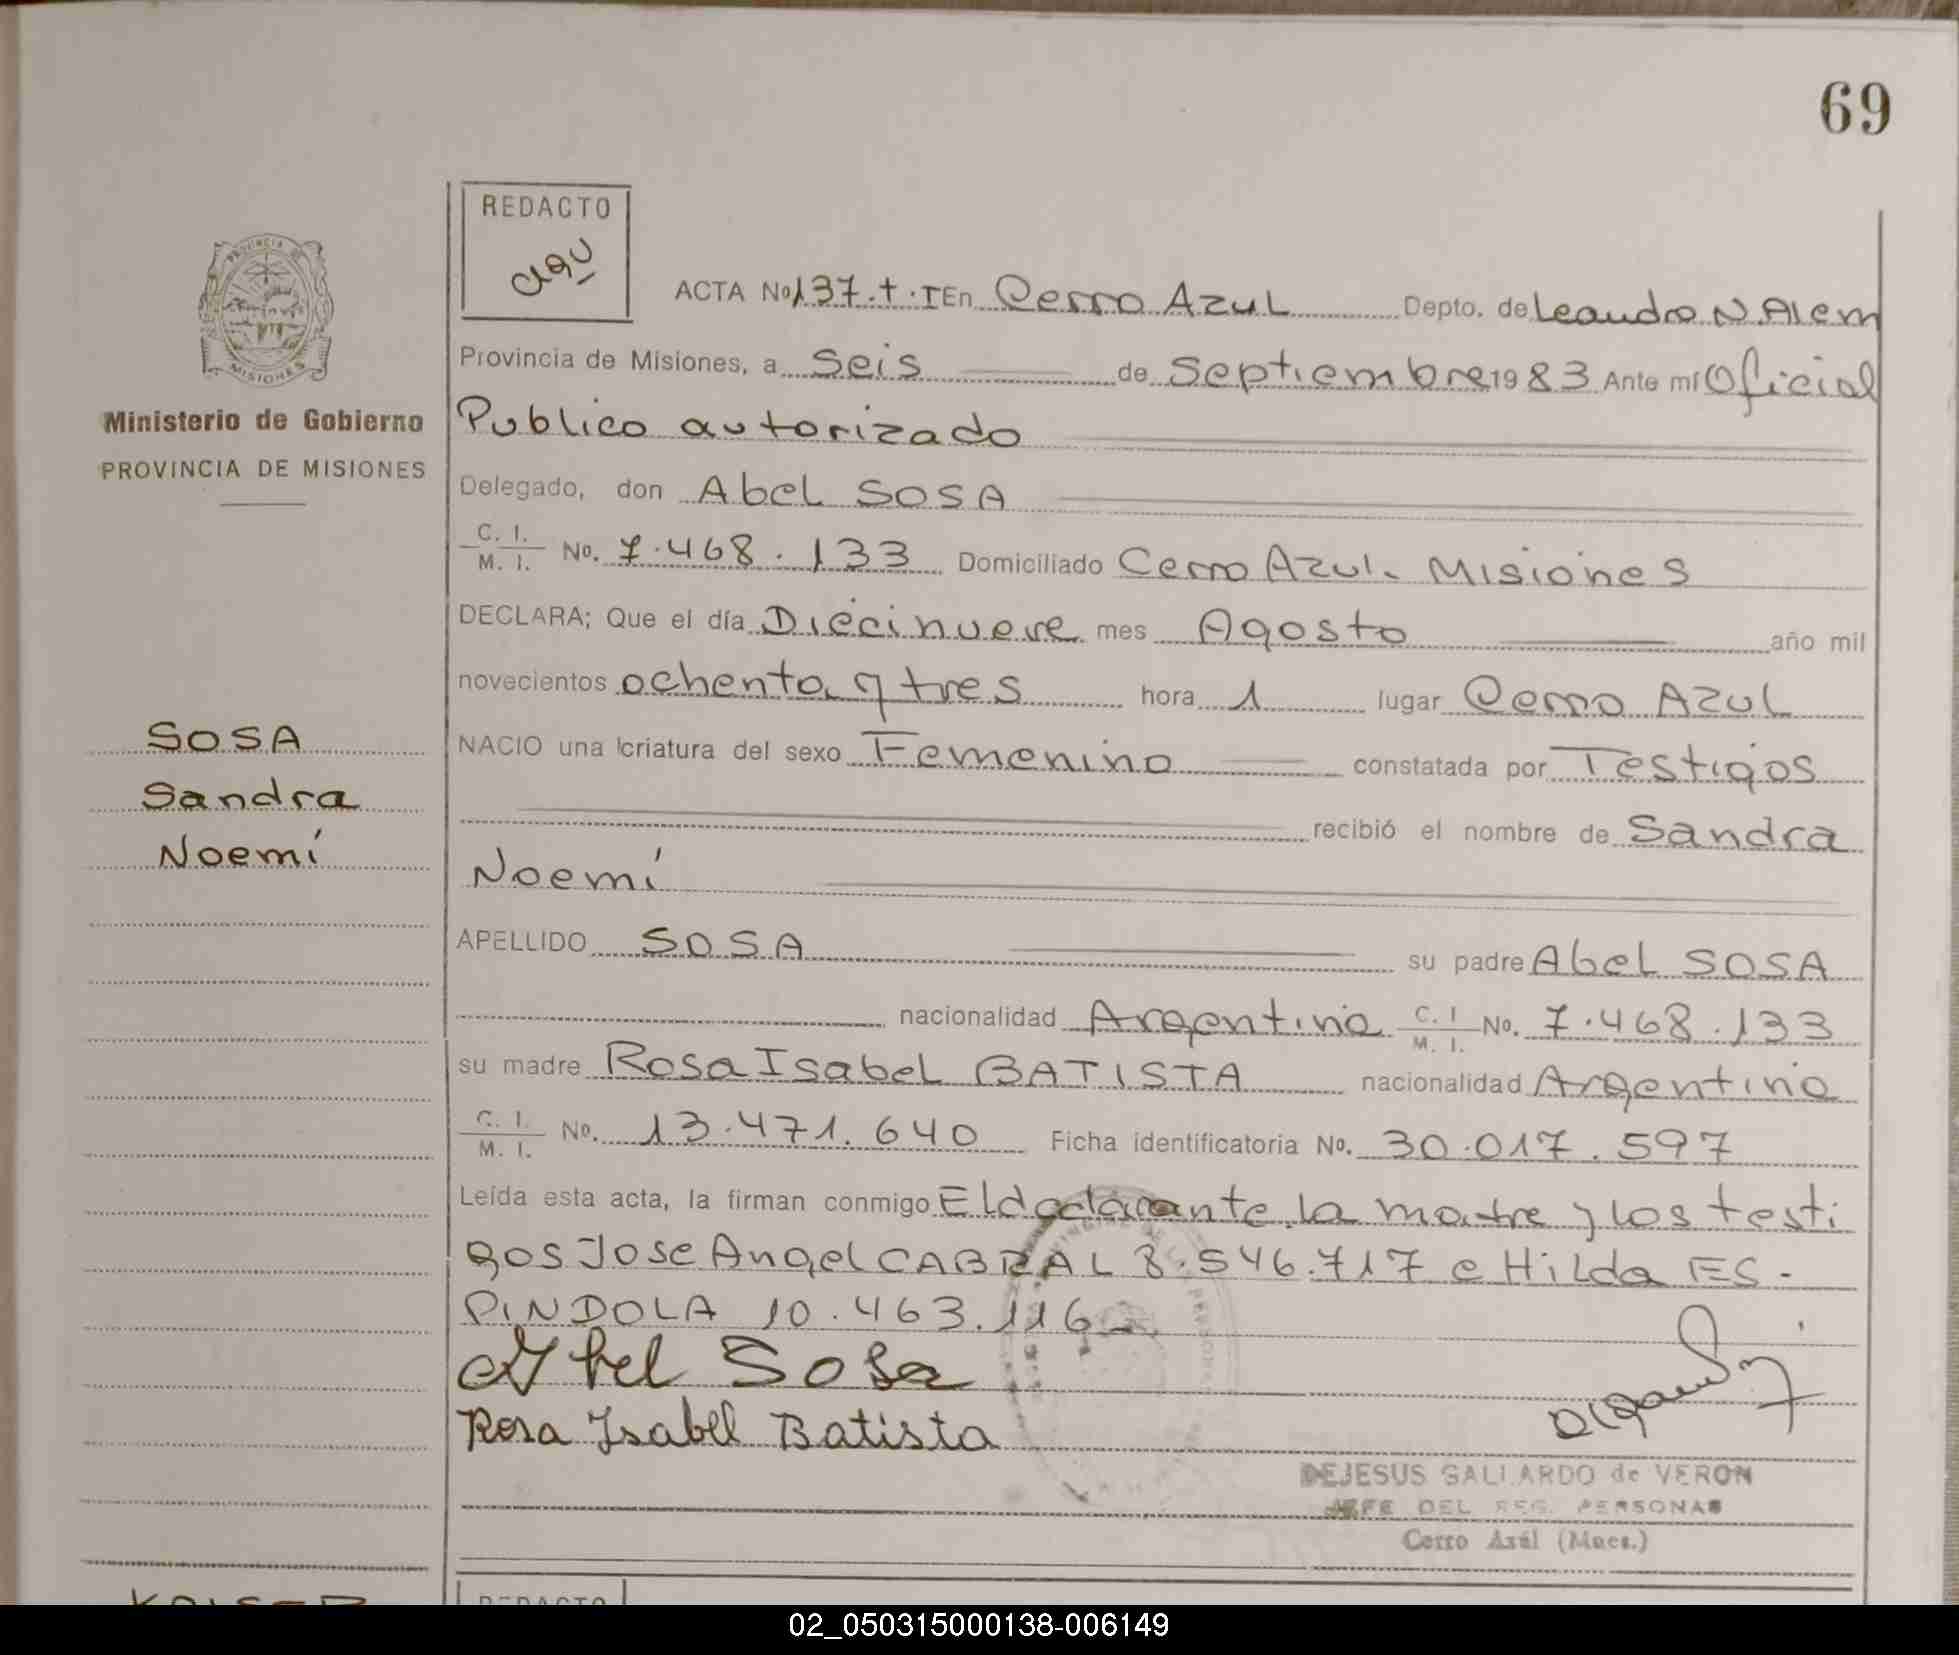 69
REDACTO
PROVINCIA DE
MISIONES
Ministerio de Gobierno
PROVINCIA DE MISIONES
SOSA
Sandra
Noemí
ACTA Nº 137.T.I En Cerro Azul Depto. de Leandro N. Alem
Provincia de Misiones, a Seis de Septiembre 1983 Ante mí Oficial
Publico autorizado
Delegado, don Abel SOSA
C. I. M. I. Nº. 7.468.133 Domiciliado Cerro Azul. Misiones
DECLARA; Que el día Diecinueve mes Agosto año mil
novecientos ochenta y tres hora 1 lugar Cerro Azul
NACIO una criatura del sexo Femenino constatada por Testigos
recibió el nombre de Sandra
Noemí
APELLIDO SOSA su padre Abel SOSA
nacionalidad Argentina C. I M. I. Nº. 7.468.133
su madre Rosa Isabel BATISTA nacionalidad Argentina
C. I. M. I. Nº. 13.471.640 Ficha identificatoria Nº. 30.017.597
Leída esta acta, la firman conmigo El declarante, la madre y los testi
gos Jose Angel CABRAL 8.546.717 e Hilda ES-
PINDOLA 10.463.116
Abel Sosa
Rosa Isabel Batista
DEJESUS GALLARDO de VERON
JEFE DEL REG. PERSONAS
Cerro Azúl (Mnes.)
KAISER
REDACTO
02_050315000138-006149